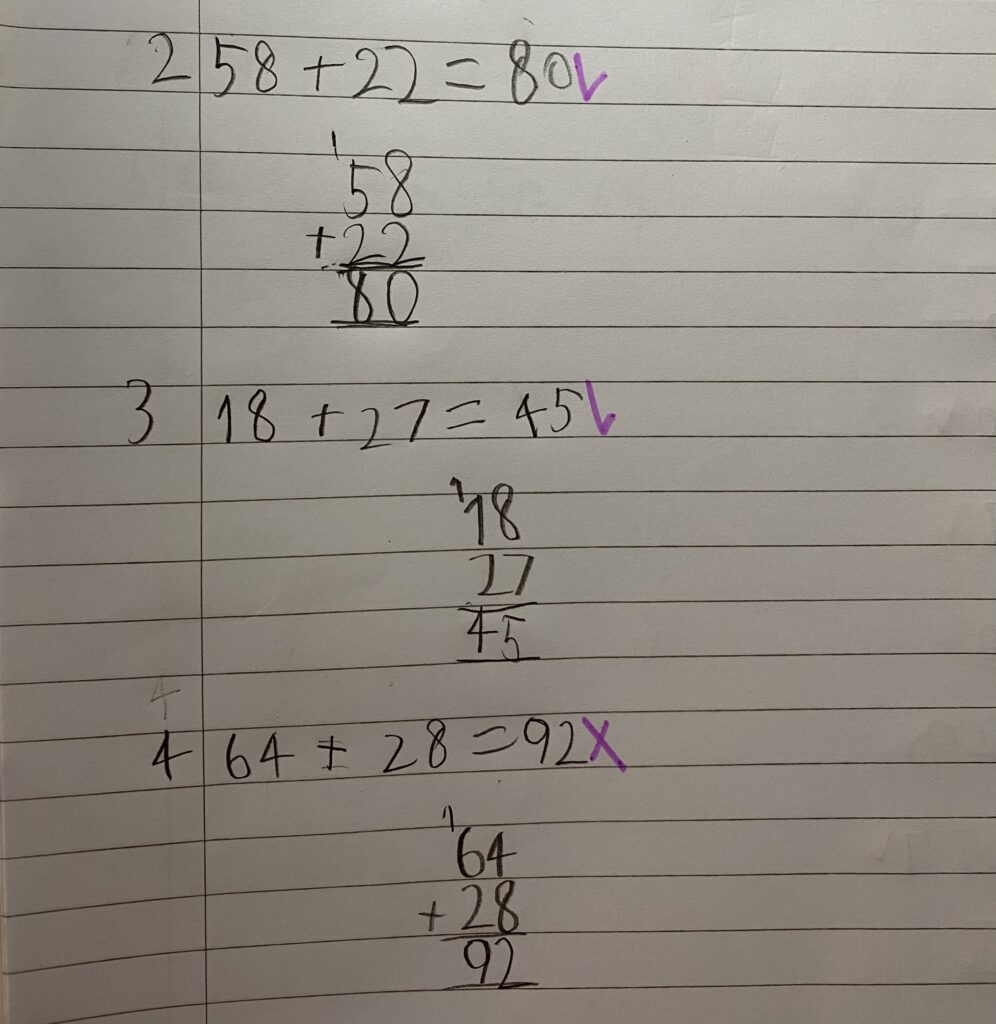 2 58 + 22 = 80 ✓
1
58
+ 22
80
3 18 + 27 = 45 ✓
1
18
27
45
4
4 64 + 28 = 92 X
1
64
+ 28
92